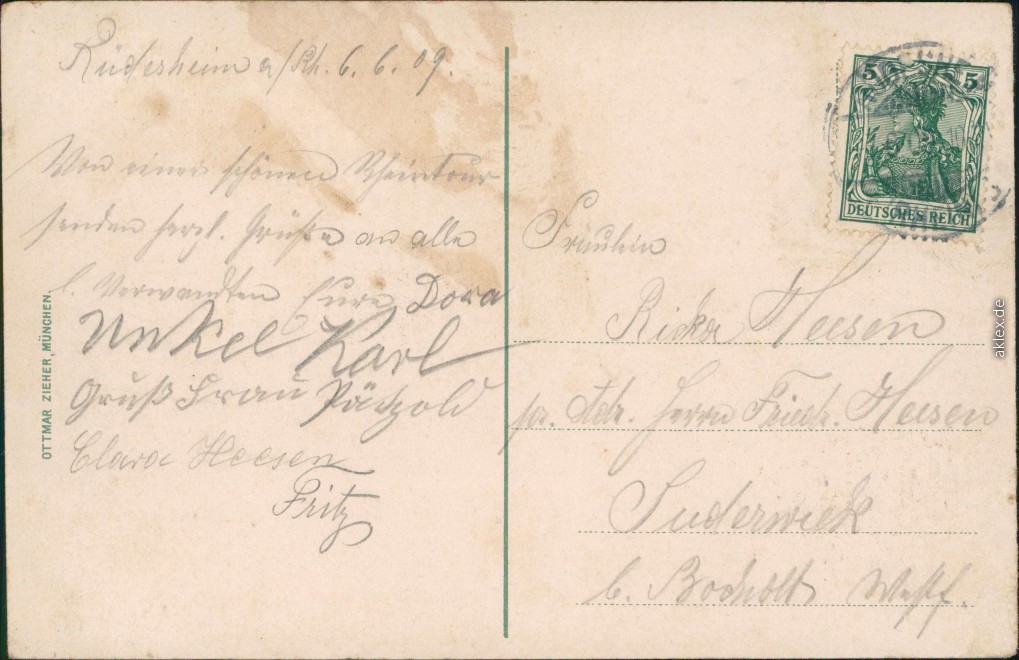 Rüdesheim a/Rh. 6. 6. 09.
Von einer schönen Rheintour
senden herzl. Grüße an alle
l. Verwandten Eure Dora
Unkel Karl
Gruß Frau Pätzold
Clara Heesen
Fritz
OTTMAR ZIEHER, MÜNCHEN.
5 5
DEUTSCHES REICH
Fräulein
Ricka Heesen
pr. Adr. Herrn Friedr. Heesen
Suderwick
b. Bocholt Westf.
aklex.de